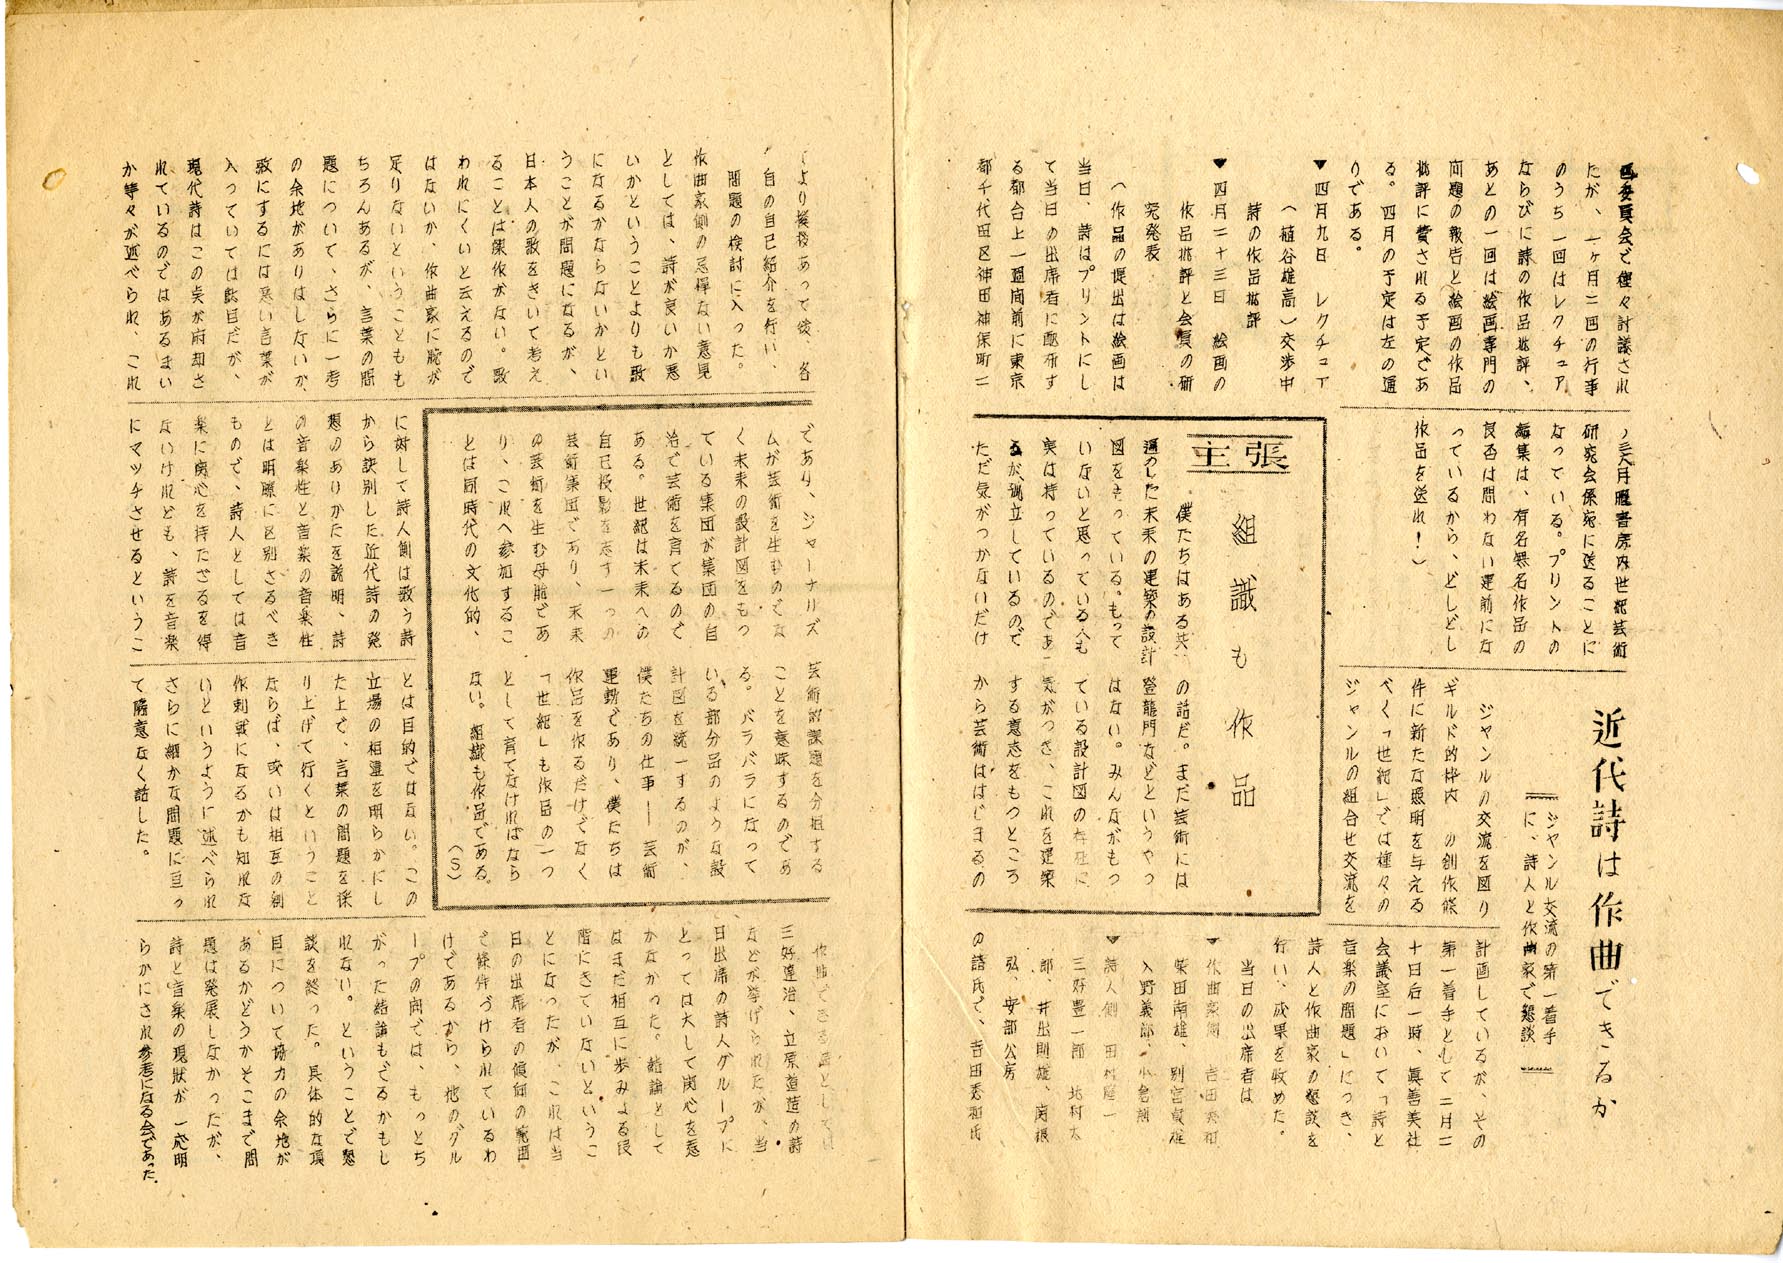 画委員会で種々計議され
たが、一ヶ月二回の行事
のうち一回はレクチュア
ならびに詩の作品批評、
あとの一回は絵画専門の
問題の報告と絵画の作品
批評に費される予定であ
る。四月の予定は左の通
りである。
▼四月九日 レクチュア
(植谷雄高)交渉中
詩の作品批評
▼四月二十三日 絵画の
作品批評と会員の研
究発表
(作品の提出は絵画は
当日、詩はプリントにし
て当日の出席者に配布す
る都合上一週間前に東京
都千代田区神田神保町二
ノ三六月曜書房内世紀芸術
研究会係宛に送ることに
なっている。プリントの
編集は、有名無名作品の
良否は問わない建前にな
っているから、どしどし
作品を送れ!)
近代詩は作曲できるか
ジャンル交流の第一着手
に、詩人と作曲家で懇談
ジャンルの交流を図り
ギルド的枠内の創作條
件に新たな照明を与える
べく「世紀」では種々の
ジャンルの組合せ交流を
計画しているが、その
第一着手として二月二
十日后一時、眞善美社
会議室において「詩と
音楽の問題」につき、
詩人と作曲家の懇談を
行い、成果を收めた。
当日の出席者は
▼作曲家側 吉田秀和
柴田南雄、別宮貞雄
入野義郎、小倉朗
▼詩人側 田村隆一
三好豊一郎 北村太
郎、井出則雄、関根
弘、安部公房
の諸氏で、吉田秀和氏
より挨拶あって後、各
自の自己紹介を行い、
問題の検討に入った。
作曲家側の忌憚ない意見
としては、詩が良いか悪
いかということよりも歌
になるかならないかとい
うことが問題になるが、
日本人の歌をきいて考え
ることは傑作がない。歌
われにくいと云えるので
はないか、作曲家に腕が
足りないということもも
ちろんあるが、言葉の問
題について、さらに一考
の余地がありはしないか、
歌にするには悪い言葉が
入っていては駄目だが、
現代詩はこの点が府却さ
れているのではあるまい
か等々が述べられ、これ
に対して詩人側は歌う詩
から訣別した近代詩の発
想のありかたを説明、詩
の音楽性と音楽の音楽性
とは明瞭に区別さるべき
もので、詩人としては音
楽に関心を持たざるを得
ないけれども、詩を音楽
にマッチさせるというこ
とは目的ではない。この
立場の相違を明らかにし
た上で、言葉の問題を採
り上げて行くということ
ならば、或いは相互の創
作刺戟になるかも知れな
いというように述べられ
さらに細かな問題に亘っ
て隨意なく話した。
作曲できる詩としては
三好達治、立原道造の詩
などが挙げられたが、当
日出席の詩人グループに
とっては大して関心を惹
かなかった。結論として
はまだ相互に歩みよる段
階にきていないというこ
とになったが、これは当
日の出席者の傾向の範囲
で條件づけられているわ
けであるから、他のグル
ープの間では、もっとち
がった結論もでるかもし
れない。ということで懇
談を終った。具体的な項
目について協力の余地が
あるかどうかそこまで問
題は発展しなかったが、
詩と音楽の現狀が一応明
らかにされ参考になる会であった。
主張
組識も作品
僕たちはある共
通のした未来の建築の設計
図をもっている。もって
いないと思っている人も
実は持っているのであ
るが孤立しているので
ただ気がつかないだけ
の話だ。まだ芸術には
登龍門などというやつ
はない。みんながもっ
ている設計図の存在に
気がつき、これを建築
する意志をもつところ
から芸術ははじまるの
であり、ジャーナリズ
ムが芸術を生むのでな
く未来の設計図をもっ
ている集団が集団の自
治で芸術を育てるので
ある。世紀は未来への
自己投影を志す一つの
芸術集団であり、未来
の芸術を生む母胎であ
り、これへ参加するこ
とは同時代の文化的、
芸術的課題を分担する
ことを意味するのであ
る。バラバラになって
いる部分品のような設
計図を統一するのが、
僕たちの仕事——芸術
運動であり、僕たちは
作品を作るだけでなく
「世紀」も作品の一つ
として育てなければなら
ない。組織も作品である。
(S)